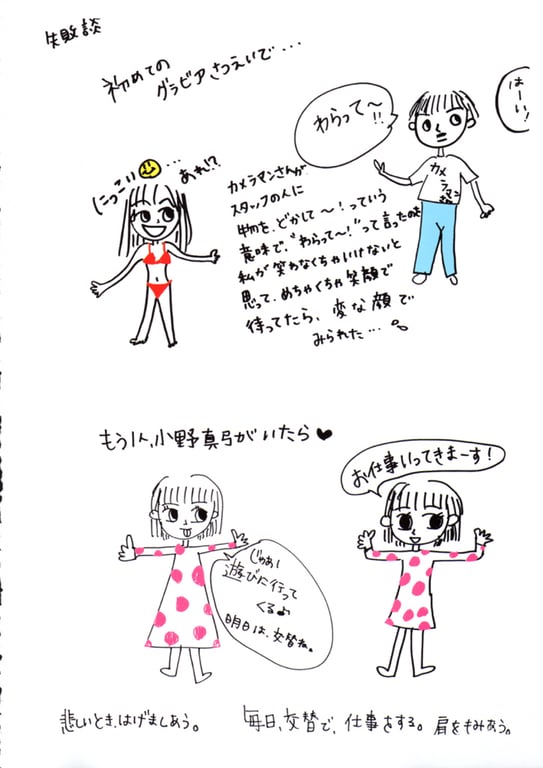 失敗談
初めての
グラビアさつえいで・・・
はーい!
わらって〜!!
カメラマン
にっこい ・・・
あれ!?
カメラマンさんが
スタッフの人に
物を、どかして〜!っていう
意味で、"わらって〜!"って言ったのを
私が笑わなくちゃいけないと
思って、めちゃくちゃ笑顔で
待ってたら、変な顔で
みられた・・・。
もう1人、小野真弓がいたら♥
お仕事いってきまーす!
じゃぁ!
遊びに行って
くるよ
明日は、交替ね。
悲しいとき、はげましあう。
毎日、交替で、仕事をする。肩をもみあう。